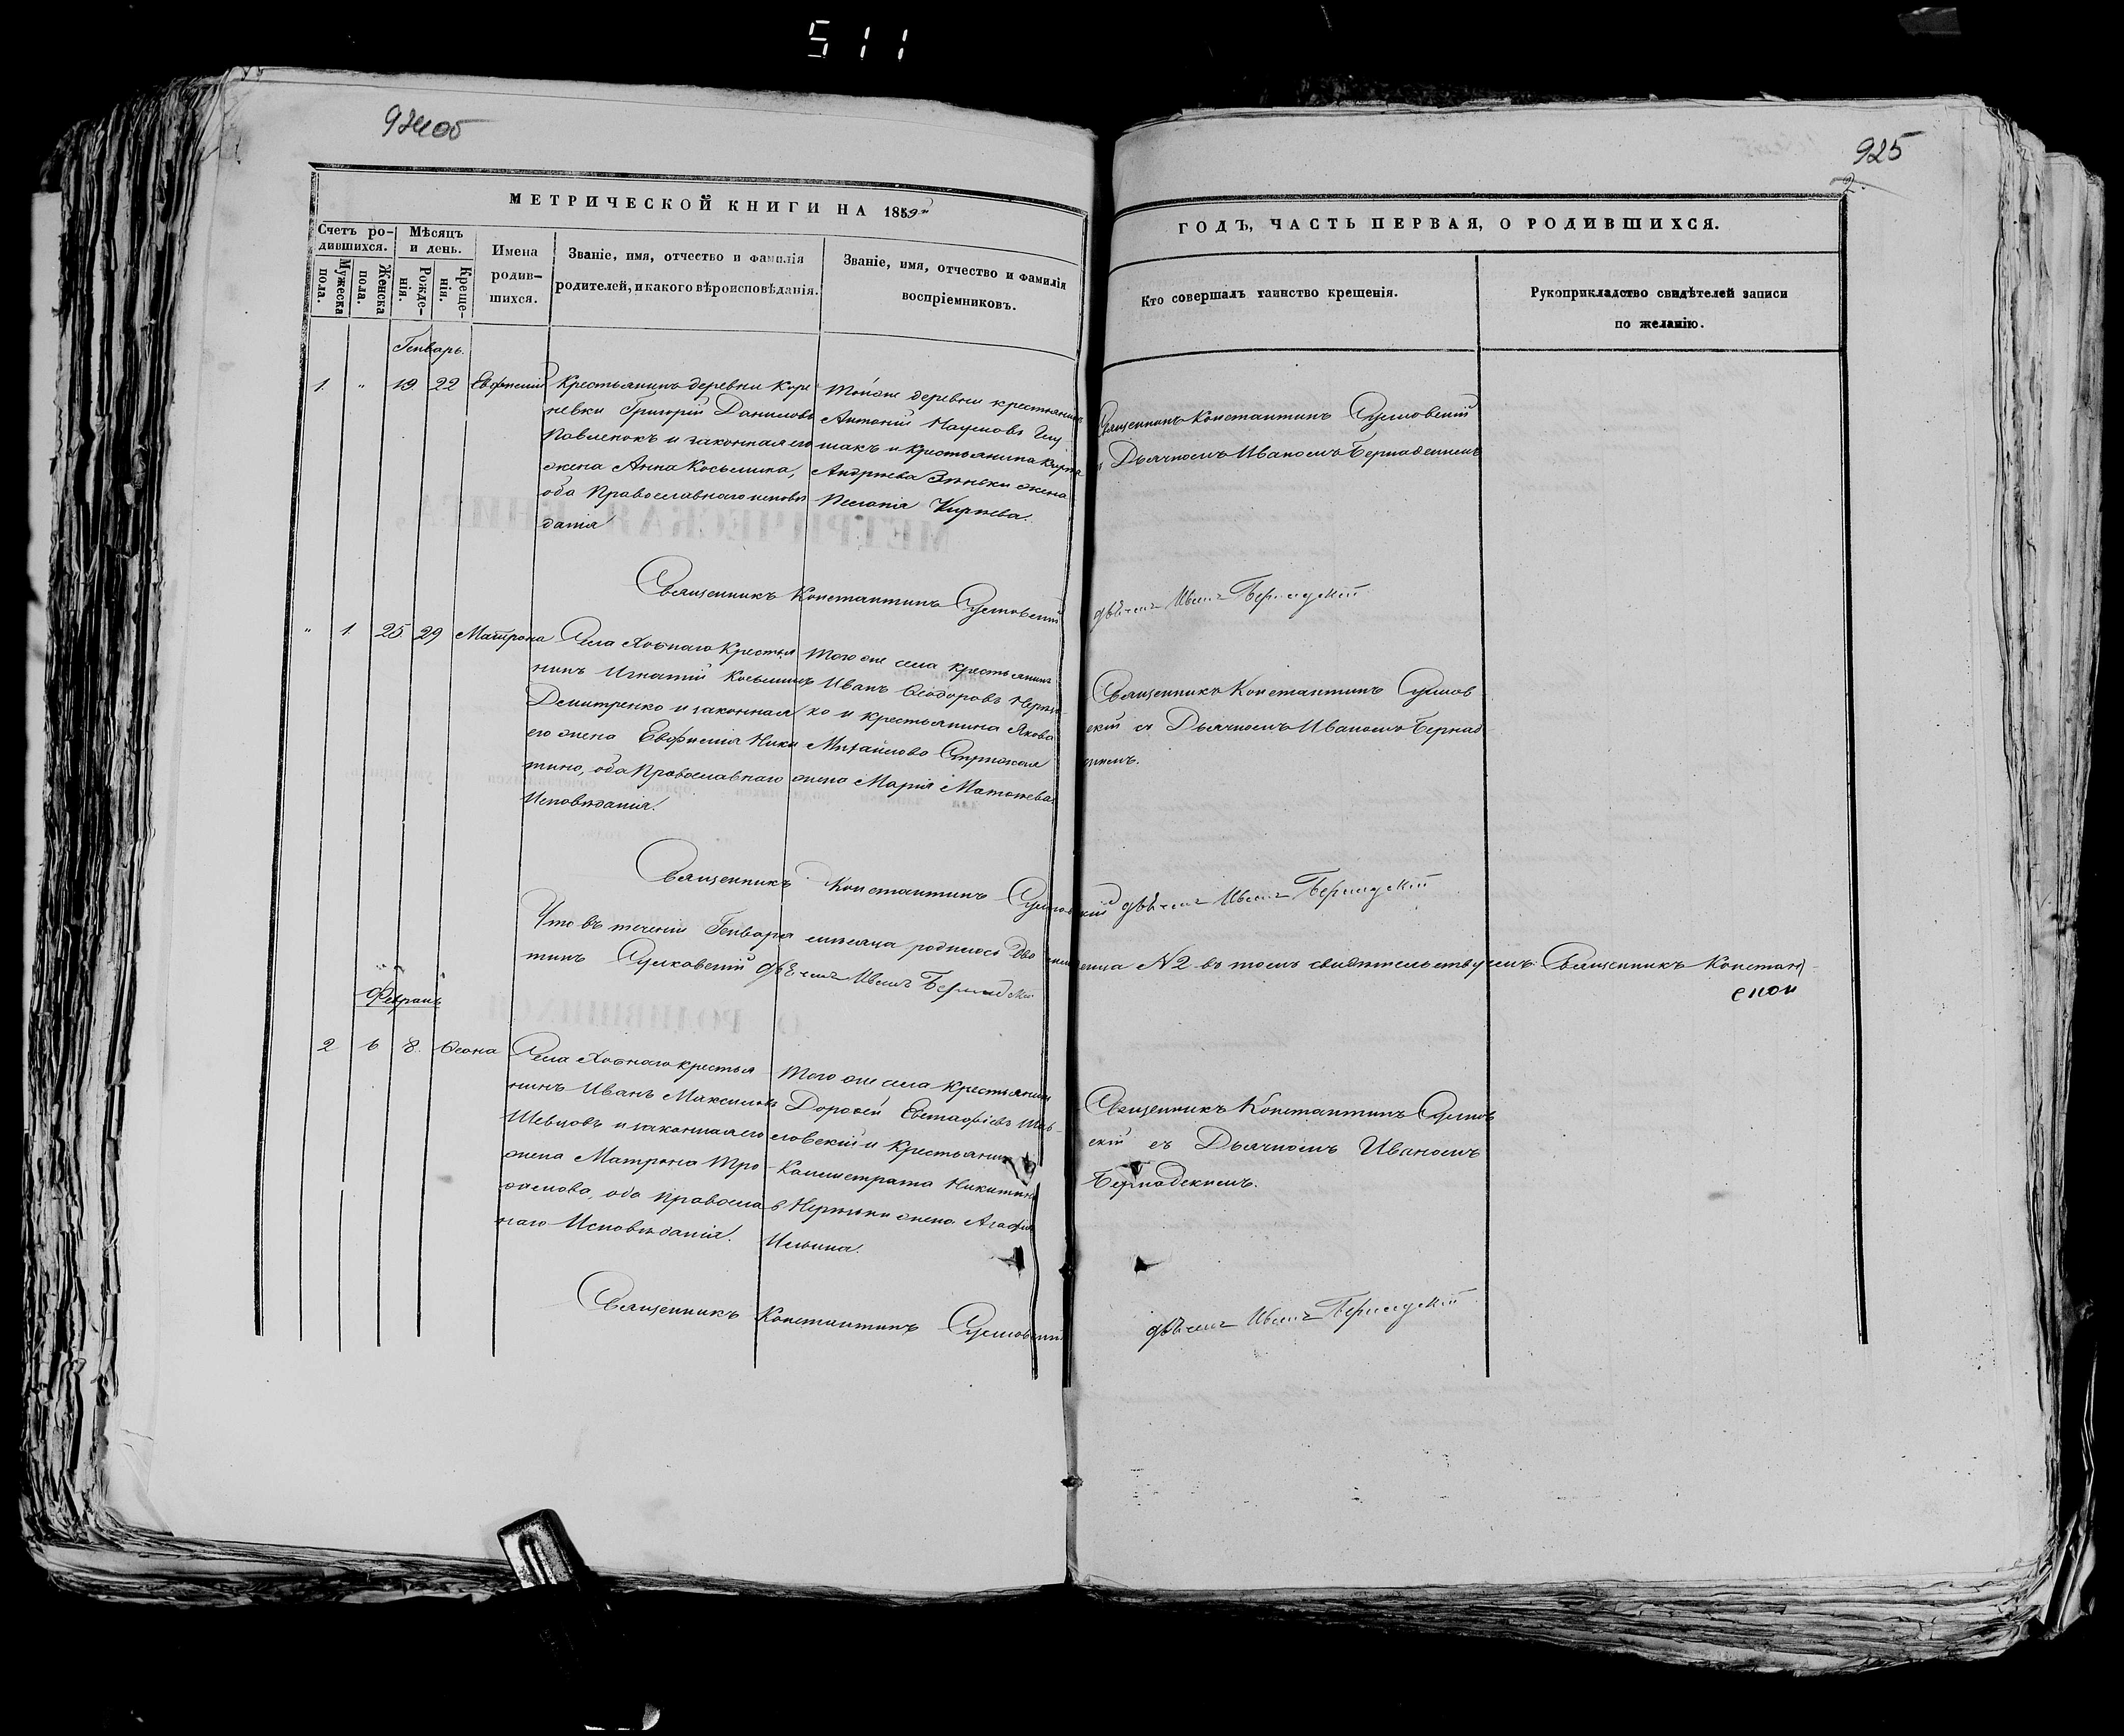 511
924об
925
2.
МЕТРИЧЕСКОЙ КНИГИ НА 1859й
ГОДЪ, ЧАСТЬ ПЕРВАЯ, О РОДИВШИХСЯ.
Счетъ ро-
дившихся.
Мужеска
пола.
Женска
пола.
Мѣсяцъ
и день.
Рожде-
нія.
Креще-
нія.
Имена
родив-
шихся.
Званіе, имя, отчество и фамилія
родителей, и какого вѣроисповѣданія.
Званіе, имя, отчество и фамилія
воспріемниковъ.
Кто совершалъ таинство крещенія.
Рукоприкладство свидѣтелей записи
по желанію.
Генварь.
1. " 19. 22 Евфимій
Крестьянинъ деревни Кире
невки Григорій Даниловъ
Павленокъ и законная его
жена Анна Косьмина,
оба Православнаго исповѣ
данія
Тойже деревни крестьянинъ
Антоній Наумовъ
макъ и крестьянина
Андреева Зѣньки жена
Пелагія Кирѣева.
Священникъ Константинъ Сулковскій
съ Дьячкомъ Иваномъ Бернадскимъ
Священникъ Константинъ Сулковскій
дьячекъ Иванъ Бернадскій
" 1. 25 29 Матрона
Села Хотнаго Крестья
нинъ Игнатій Косьминъ
Демитренко и законная
его жена Евфимія Ники
тина, оба Православнаго
Исповѣданія.
Того же села крестьянинъ
Иванъ Ѳеодоровъ
ко и крестьянина Якова
Михайлова
жена Марія Матѳеева
Священникъ Константинъ Сулков
скій съ Дьячкомъ Иваномъ Бернад
скимъ.
Священникъ Константинъ Сулковскій дьячекъ Иванъ Бернадскій
Что въ теченіи Генваря мѣсяца родилось два младенца N2 въ томъ свидѣтельствуемъ: Священникъ Констан-
тинъ Сулковскій дьячекъ Иванъ Бернадскій
Февраль
2 6 8. Ѳеона
Села Хотнаго крестья
нинъ Иванъ Максимовъ
Шевцовъ и законная его
жена Матрона Тро-
фимова, оба Православ
наго Исповѣданія.
Того же села крестьянинъ
Дорофей Евстафіевъ
ловскій и Крестьянина
Калистрата Никитина
жена Агафія
Ильина.
Священникъ Константинъ Сулков
скій съ Дьячкомъ Иваномъ
Бернадскимъ.
Священникъ Константинъ Сулковскій
дьячекъ Иванъ Бернадскій